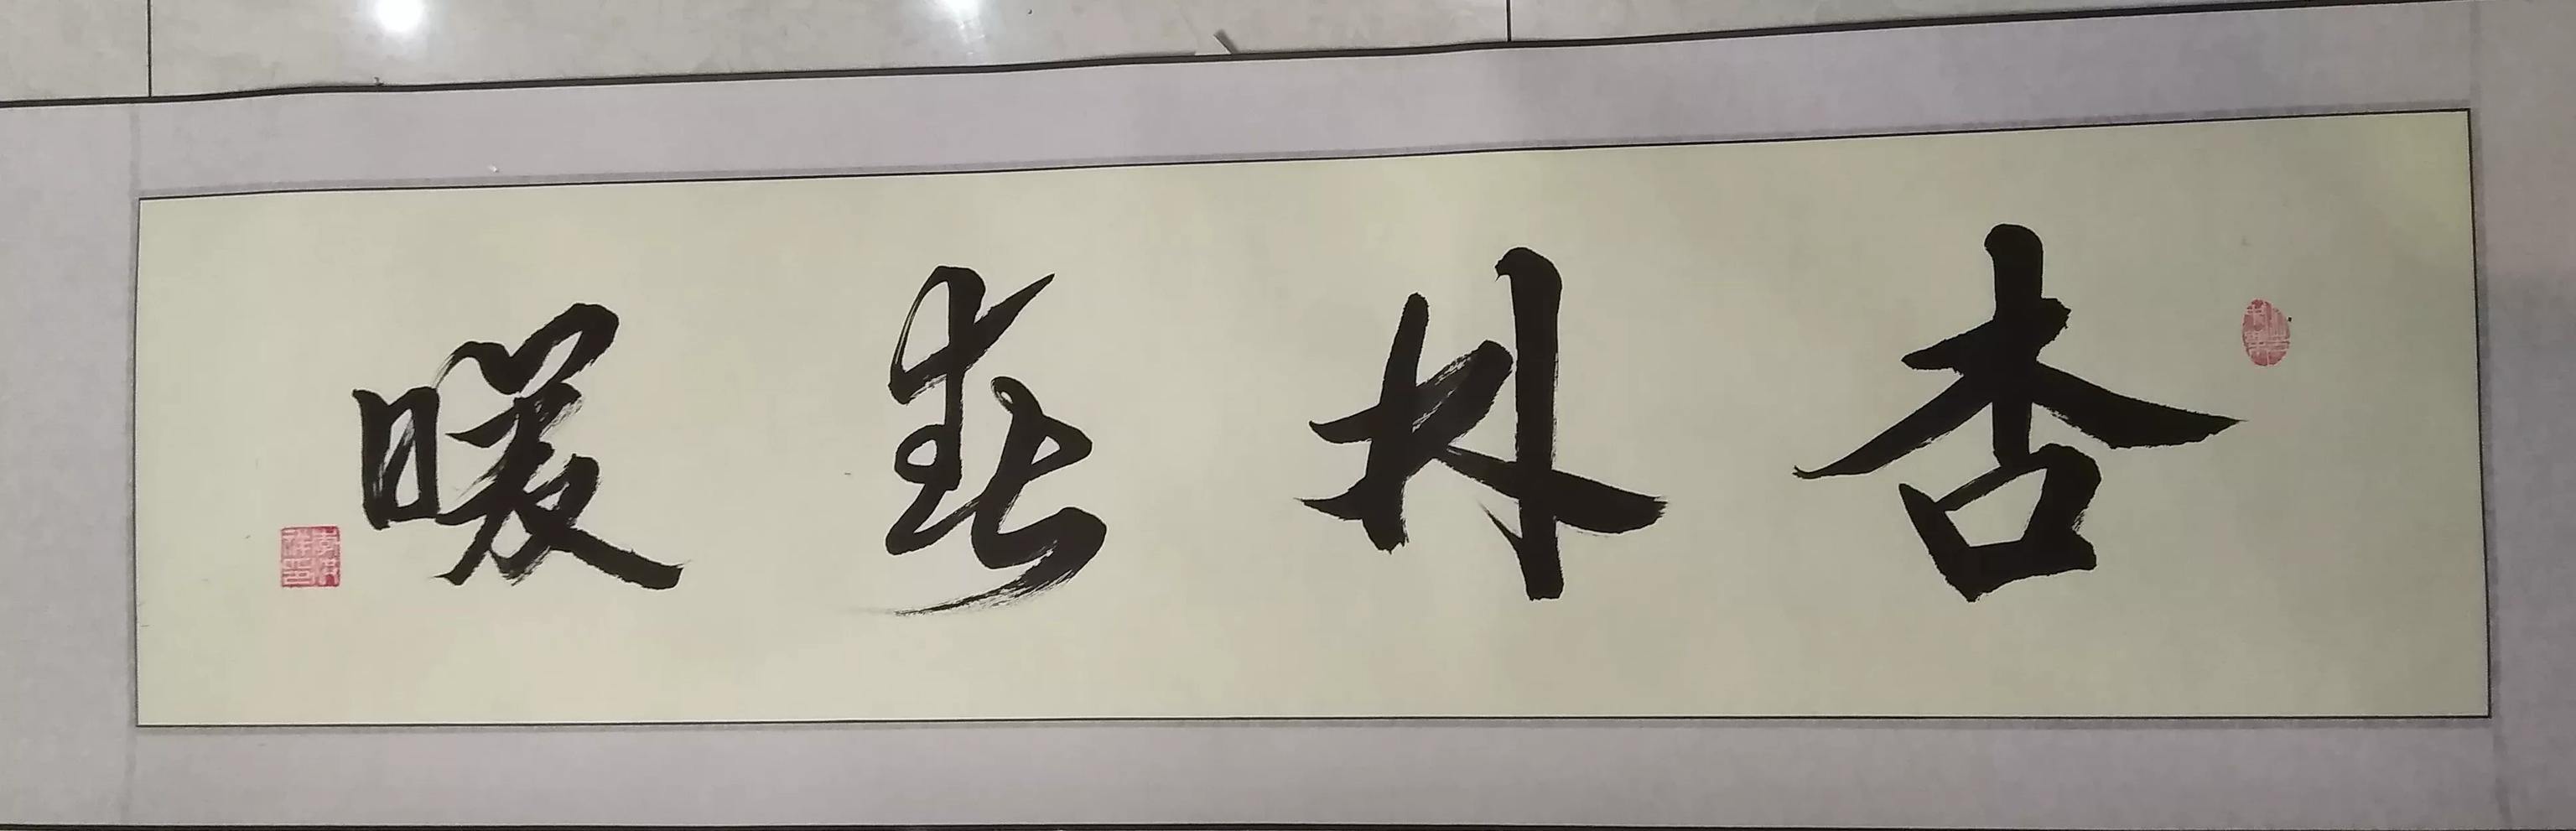 杏林春暖